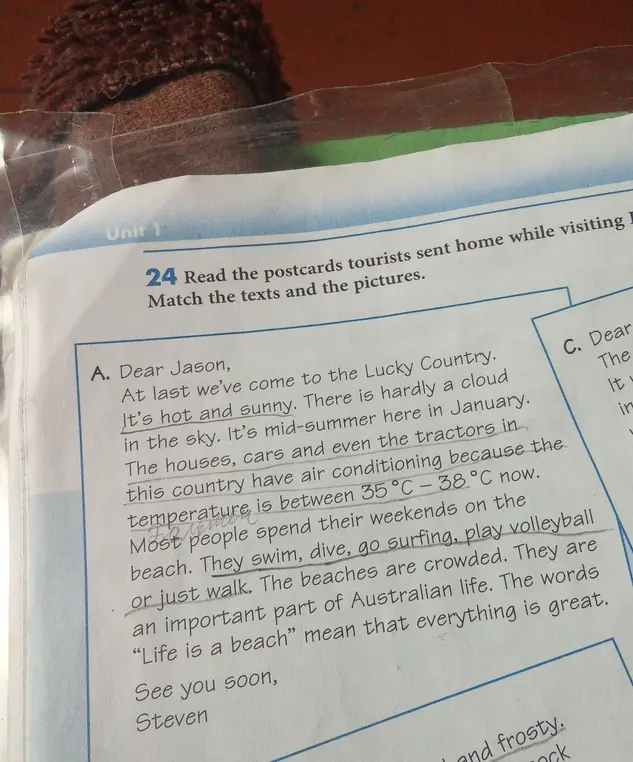 Unit 1
24 Read the postcards tourists sent home while visiting
Match the texts and the pictures.
A. Dear Jason,
At last we've come to the Lucky Country.
It's hot and sunny. There is hardly a cloud
in the sky. It's mid-summer here in January.
The houses, cars and even the tractors in
this country have air conditioning because the
temperature is between 35°C – 38°C now.
Most people spend their weekends on the
beach. They swim, dive, go surfing, play volleyball
or just walk. The beaches are crowded. They are
an important part of Australian life. The words
"Life is a beach" mean that everything is great.
See you soon,
Steven
C. Dear
The
It
in
and frosty.